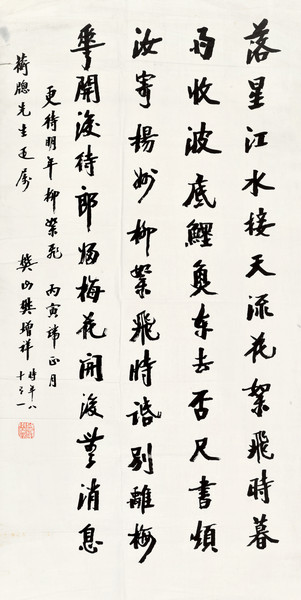 落星江水接天流花絮飛時暮
雨收波底鯉魚东去否尺書煩
汝寄楊州柳絮飛時話別離梅
華開後待郎歸梅花開後無消息
更待明年柳絮飛　丙寅端正月
聰先生正屬　樊山樊增祥時年八
十又一